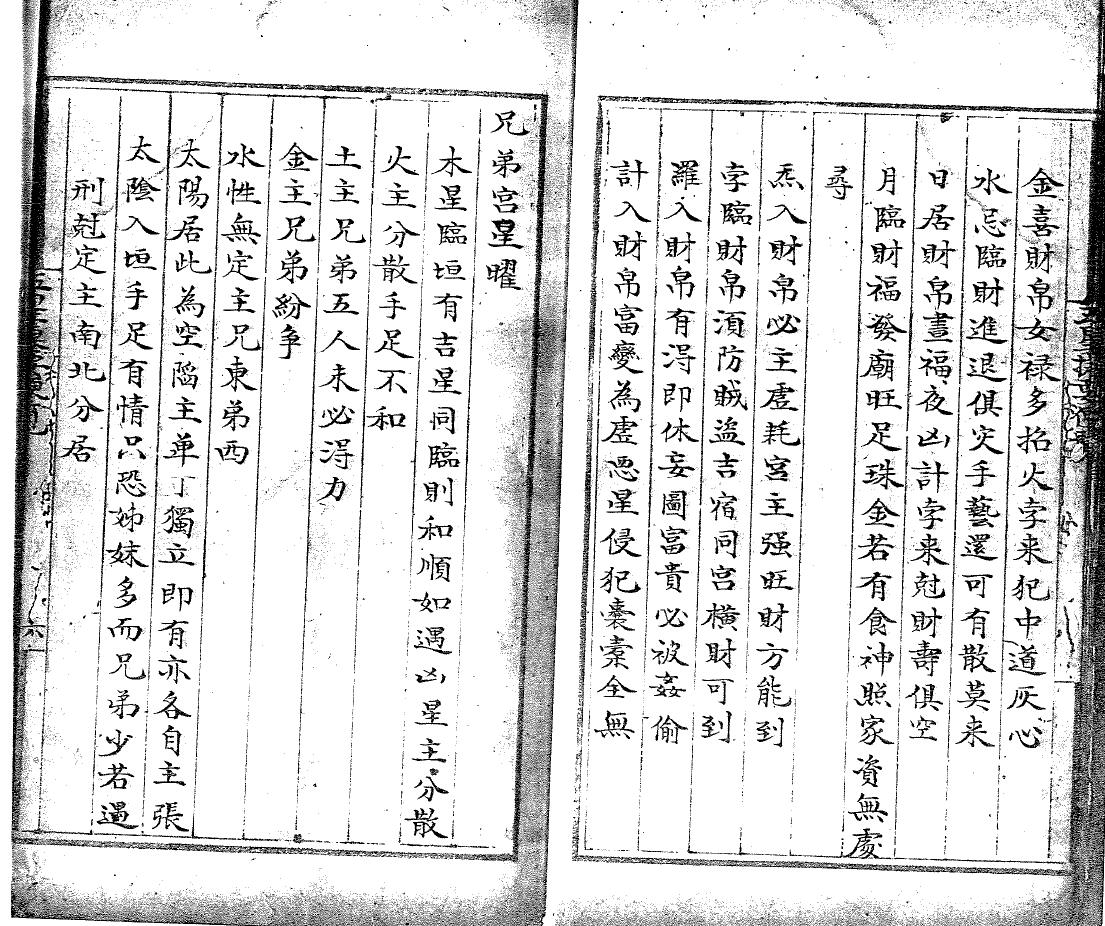 金喜財帛女禄多招火孛来犯中道灰心
水忌臨財進退俱灾手藝還可有散莫来
日居財帛晝福夜凶計孛来尅財壽俱空
月臨財福發廟旺足珠金若有食神照家資無處
尋
炁入財帛必主虛耗宮主强旺財方能到
孛臨財帛湏防賊盗吉宿同宫橫財可到
羅入財帛有淂即休妄圖富貴必被姦偷
計入財帛富變為虛惡星侵犯囊橐全無
兄弟宫星曜
木星臨垣有吉星同臨則和順如遇凶星主分散
火主分散手足不和
土主兄弟五人未必淂力
金主兄弟紛争
水性無定主兄東弟西
太陽居此為空陷主单丁獨立即有亦各自主張
太陰入垣手足有情只恐姊妹多而兄弟少若遇
刑尅定主南北分居
六